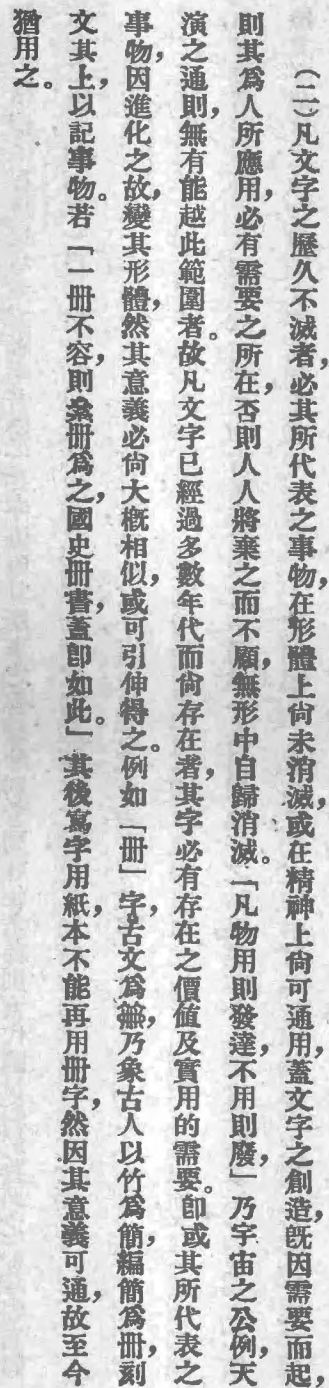 (二)凡文字之歷久不滅者,必其所代表之事物,在形體上尙未消滅,或在精神上尙可通用,蓋文字之創造,旣因需要而起,
則其爲人所應用,必有需要之所在,否則人人將棄之而不顧,無形中自歸消滅。「凡物用則發達,不用則廢」乃宇宙之公例,天
演之通則,無有能越此範圍者。故凡文字已經過多數年代而尙存在者,其字必有存在之價値及實用的需要。卽或其所代表之
事物,因進化之故,變其形體,然其意義必尙大槪相似,或可引伸得之。例如「册」字,古文爲乃象古人以竹爲簡,編簡爲册,刻
文其上,以記事物。若「一册不容,則絫册爲之,國史册書,蓋卽如此。」其後寫字用紙,本不能再用册字,然因其意義可通,故至今
猶用之。